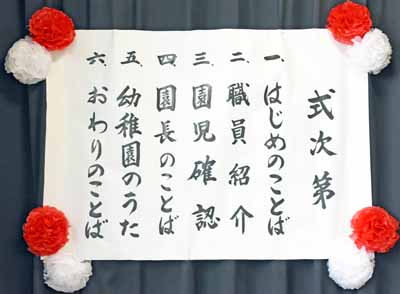 式次第
一、はじめのことば
二、職員紹介
三、園児確認
四、園長のことば
五、幼稚園のうた
六、おわりのことば